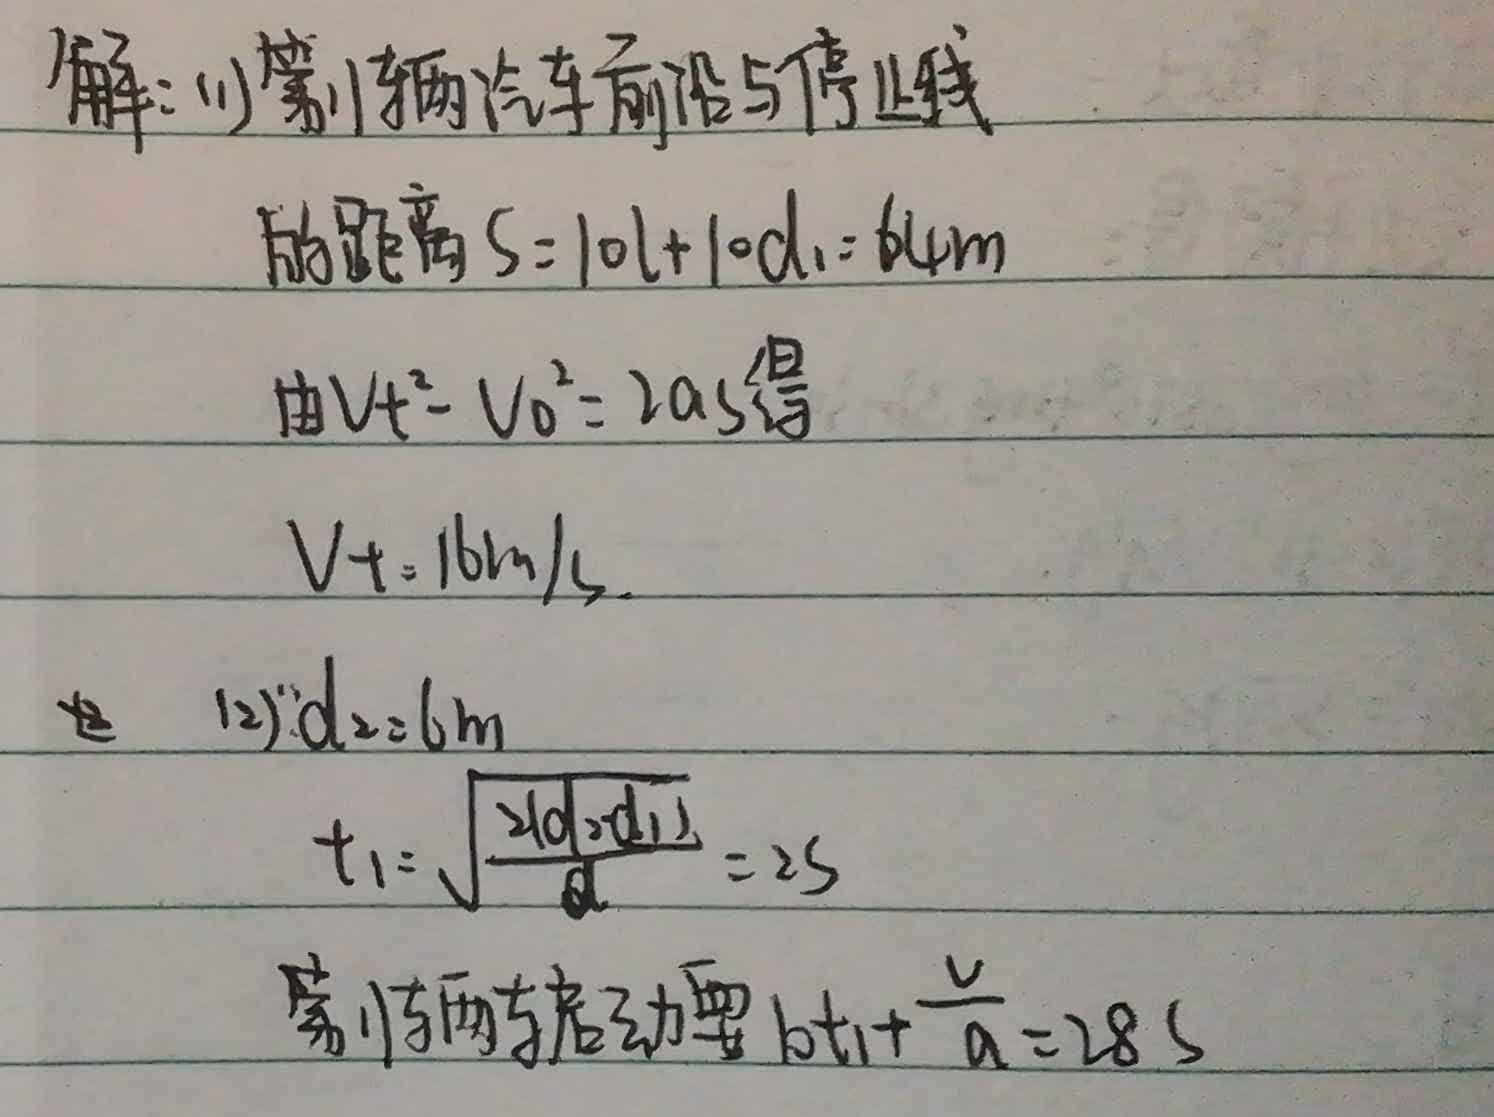 解:(1)第11辆汽车前沿与停止线
的距离S=10l+10d₁=64m
由Vt²-V₀²=2as得
Vt=16m/s.
(2)∵d₂=6m
t₁=√(2(d₂-d₁)/a)=2s
第11辆车启动要10t₁+v/a=28s